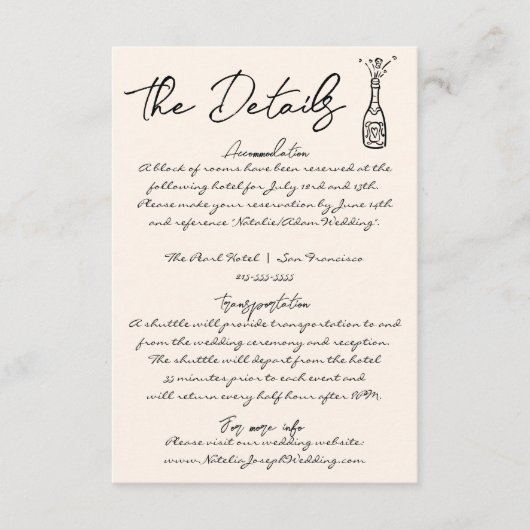 The Details
Accommodation
A block of rooms have been reserved at the
following hotel for July 12rd and 13th.
Please make your reservation by June 14th
and reference "Natalie/Adam Wedding".
The Pearl Hotel | San Francisco
215-555-5555
Transportation
A shuttle will provide transportation to and
from the wedding ceremony and reception.
The shuttle will depart from the hotel
35 minutes prior to each event and
will return every half hour after 8PM.
For more info
Please visit our wedding website:
www.NateliaJosephWedding.com